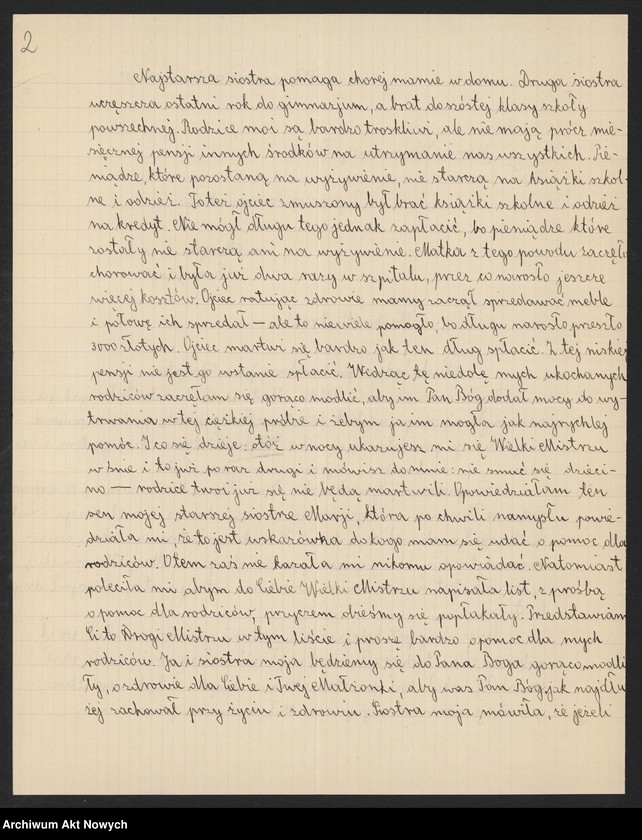 2
Najstarsza siostra pomaga chorej mamie w domu. Druga siostra
uczęszcza ostatni rok do gimnazjum, a brat do szóstej klasy szkoły
powszechnej. Rodzice moi są bardzo troskliwi, ale nie mają prócz mie-
sięcznej pensji innych środków na utrzymanie nas wszystkich. Pie-
niądze, które pozostaną na wyżywienie, nie starczą na książki szkol-
ne i odzież. Toteż ojciec zmuszony był brać książki szkolne i odzież
na kredyt. Nie mógł długu tego jednak zapłacić, bo pieniądze które
zostały nie starczą ani na wyżywienie. Matka z tego powodu zaczęła
chorować i była już dwa razy w szpitalu, przez co narosło jeszcze
więcej kosztów. Ojciec ratując zdrowie mamy zaczął sprzedawać meble
i połowę ich sprzedał — ale to niewiele pomogło, bo długu narosło przeszło
3000 złotych. Ojciec martwi się bardzo jak ten dług spłacić. Z tej niskiej
pensji nie jest go wstanie spłacić. Widząc tę niedolę mych ukochanych
rodziców zaczęłam się gorąco modlić, aby im Pan Bóg dodał mocy do wy-
trwania w tej ciężkiej próbie i żebym ja im mogła jak najrychlej
pomóc. I co się dzieje. otóż w nocy ukazujesz mi się Wielki Mistrzu
w śnie i to już po raz drugi i mówisz do mnie: nie smuć się dzieci-
no — rodzice twoi już się nie będą martwili. Opowiedziałam ten
sen mojej starszej siostrze Marji, która po chwili namysłu powie-
działa mi, że to jest wskazówka do kogo mam się udać o pomoc dla
rodziców. O tem zaś nie kazała mi nikomu opowiadać. Natomiast
poleciła mi abym do Ciebie Wielki Mistrzu napisała list, z prośbą
o pomoc dla rodziców, przyczem obieśmy się popłakały. Przedstawiam
Ci to Drogi Mistrzu w tym liście i proszę bardzo o pomoc dla mych
rodziców. Ja i siostra moja będziemy się do Pana Boga gorąco modli
ły, o zdrowie dla Ciebie i Twej Małżonki, aby was Pan Bóg jak najdłu
żej zachował przy życiu i zdrowiu. Siostra moja mówiła, że jeżeli
Archiwum Akt Nowych